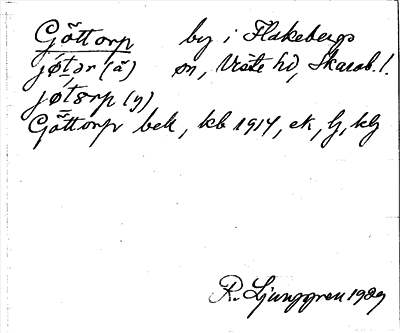 Göttorp by i Flakebergs
jǿt̲ər (ä) sn, Viste hd, Skarab. l.
jǿt̲ərp (y)
Göttorp bek, kb 1914, ek, lj, klj
R. Ljunggren 1989